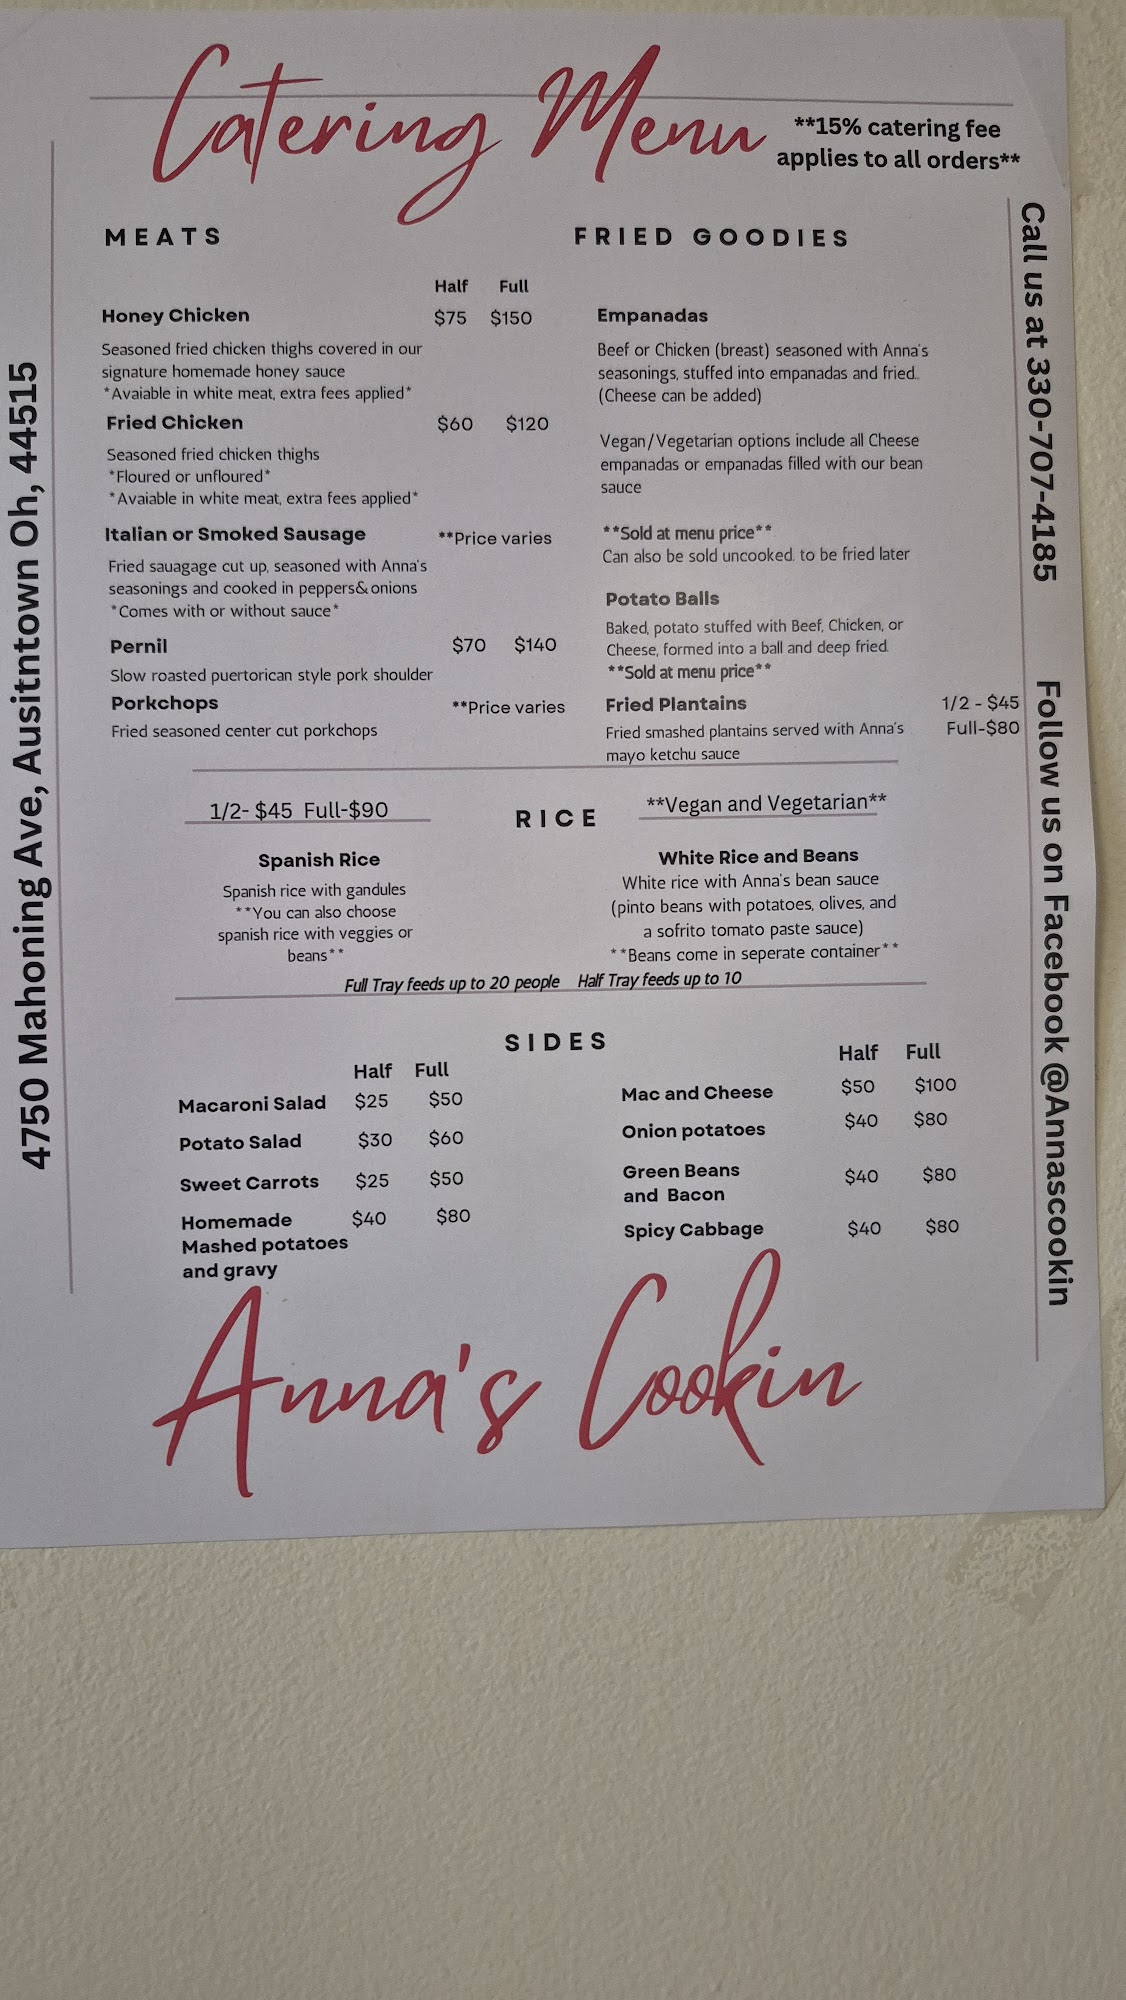 Catering Menu
**15% catering fee
applies to all orders**
MEATS
Half Full
Honey Chicken $75 $150
Seasoned fried chicken thighs covered in our
signature homemade honey sauce
*Avaiable in white meat, extra fees applied*
Fried Chicken $60 $120
Seasoned fried chicken thighs
*Floured or unfloured*
*Avaiable in white meat, extra fees applied*
Italian or Smoked Sausage **Price varies
Fried sauagage cut up, seasoned with Anna's
seasonings and cooked in peppers& onions
*Comes with or without sauce*
Pernil $70 $140
Slow roasted puertorican style pork shoulder
Porkchops **Price varies
Fried seasoned center cut porkchops
FRIED GOODIES
Empanadas
Beef or Chicken (breast) seasoned with Anna's
seasonings, stuffed into empanadas and fried..
(Cheese can be added)
Vegan/Vegetarian options include all Cheese
empanadas or empanadas filled with our bean
sauce
**Sold at menu price**
Can also be sold uncooked, to be fried later
Potato Balls
Baked, potato stuffed with Beef, Chicken, or
Cheese, formed into a ball and deep fried.
**Sold at menu price**
Fried Plantains 1/2 - $45
Fried smashed plantains served with Anna's Full-$80
mayo ketchu sauce
1/2- $45 Full-$90
RICE
**Vegan and Vegetarian**
Spanish Rice
Spanish rice with gandules
**You can also choose
spanish rice with veggies or
beans**
White Rice and Beans
White rice with Anna's bean sauce
(pinto beans with potatoes, olives, and
a sofrito tomato paste sauce)
**Beans come in seperate container**
Full Tray feeds up to 20 people Half Tray feeds up to 10
SIDES
Half Full
Macaroni Salad $25 $50
Potato Salad $30 $60
Sweet Carrots $25 $50
Homemade $40 $80
Mashed potatoes
and gravy
Half Full
Mac and Cheese $50 $100
Onion potatoes $40 $80
Green Beans
and Bacon $40 $80
Spicy Cabbage $40 $80
Anna's Cookin
4750 Mahoning Ave, Ausitntown Oh, 44515
Call us at 330-707-4185 Follow us on Facebook @Annascookin